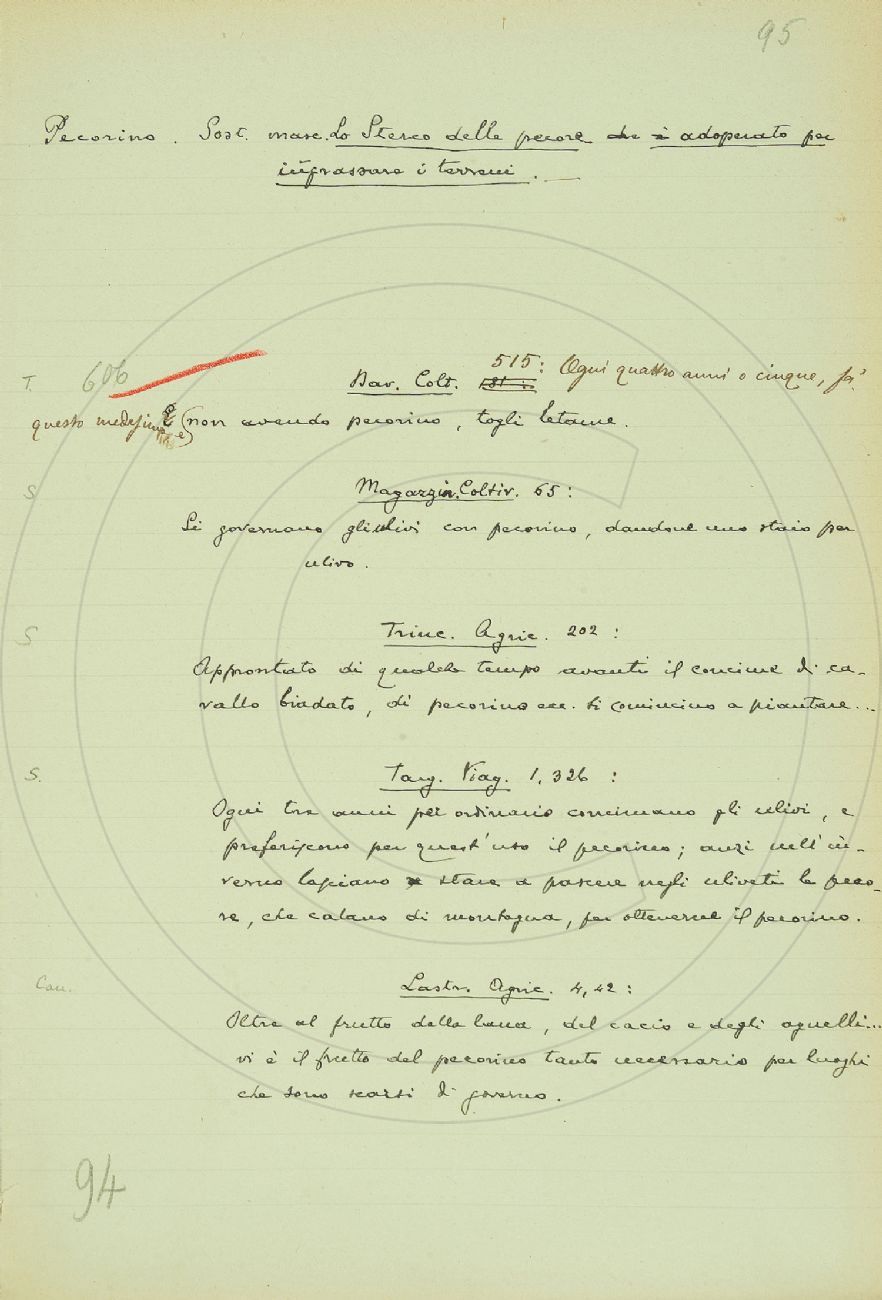 95
Pecorino. Sost. masc. Lo Sterco delle pecore che è adoperato per
ingrassare i terreni.
T. 606 Dav. Colt. 515: Ogni quattro anni o cinque, fa'
questo medesimo (e non avendo pecorino, togli letame.
S Magazzin. Coltiv. 65:
Si governano gli ulivi con pecorino, dandone uno staio per
ulivo.
S Trinc. Agric. 202:
Approntato di qualche tempo avanti il concime di ca-
vallo biadato, di pecorino ecc. si comincino a piantare...
S. Targ. Viag. 1, 326:
Ogni tre anni per ordinario concimano gli ulivi, e
preferiscono per quest'uso il pecorino; anzi nell'in-
verno lasciano stare a pascere negli uliveti le peco-
re, che calano di montagna, per ottenerne il pecorino.
Con. Lastr. Agric. 4, 42:
Oltre al frutto della lana, del cacio e degli agnelli...
vi è il frutto del pecorino tanto necessario per luoghi
che sono scarsi di governo.
94